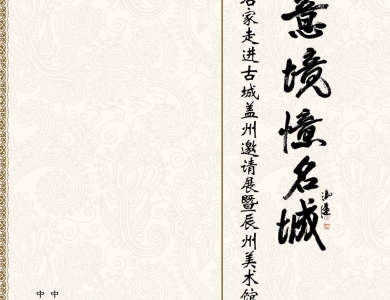 意境憶名城
名家走进古城盖州邀请展暨辰州美术馆
中
中